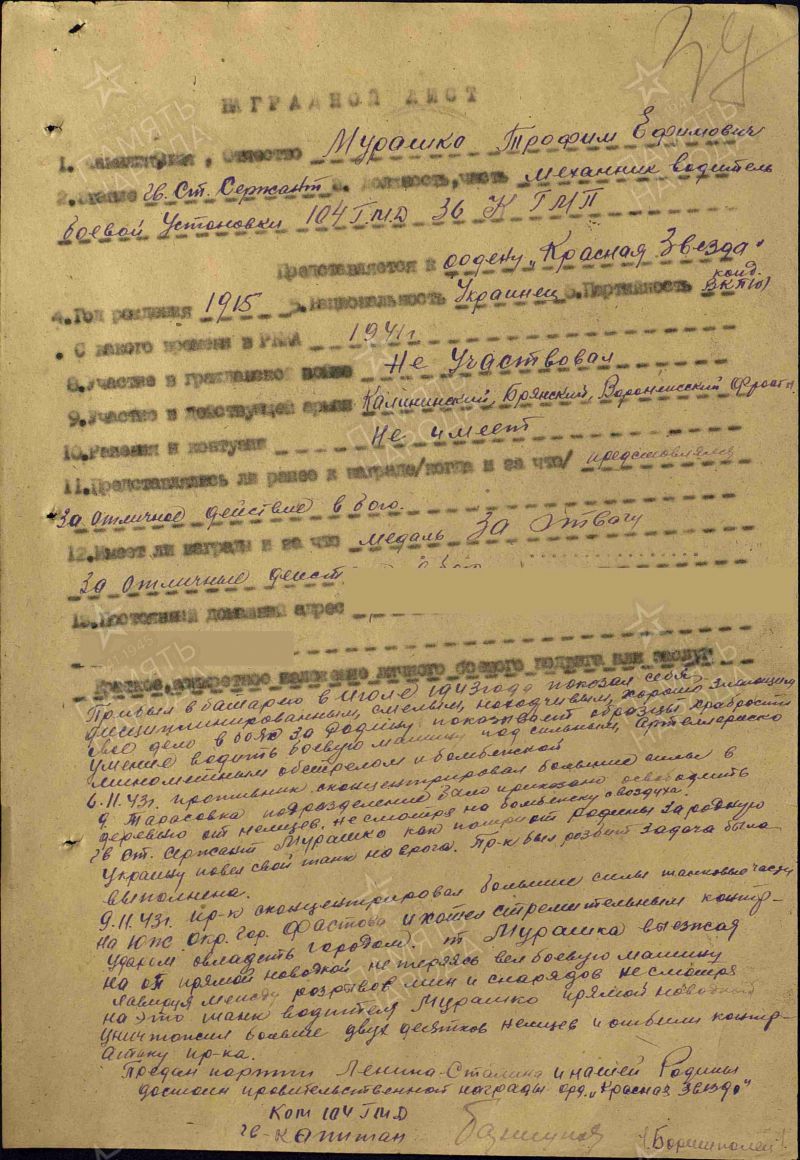 НАГРАДНОЙ ЛИСТ
1. Фамилия, имя, отчество Мурашко Трофим Ефимович
2. Звание гв. Ст. Сержант 3. Должность, часть механик водитель
боевой Установки 104 ГМД 36 К ГМП
Представляется к ордену „Красная Звезда"
4. Год рождения 1915 5. Национальность Украинец 6. Партийность канд. ВКП(б)
. С какого времени в РККА 1941г
8. Участие в гражданской войне Не Участвовал
9. Участие в действующей армии Калининский, Брянский, Воронежский фронт
10. Ранения и контузии Не имеет
11. Представлялись ли ранее к награде/когда и за что/ представлялся
За отличное действие в бою.
12. Имеет ли награды и за что медаль За Отвагу
За отличные дейст
13. Постоянный домашний адрес
Краткое, конкретное изложение личного боевого подвига или заслуг
Прибыл в батарею в Июле 1943 года показал себя
дисциплинированным, смелым, находчивым, хорошо знающим
своё дело в боях за Родину показывает образцы храбрости
умение водить боевую машину под сильным Артеллерийско
миномётным обстрелом и бомбежкой
6.11.43г. противник сконцентрировал большие силы в
д. Тарасовка подразделению было приказано освободить
деревню от немцев. Не смотря на бомбежку с воздуха.
гв ст. сержант Мурашко как патриот Родины за родную
Украину повел свой танк на врага. Пр-к был розбит Задача была
выполнена.
9.11.43г. пр-к сконцентрировал большие силы танковые части
на Юж окр. гор. Фастова и хотел стремительным контр-
ударом овладеть городом. т. Мурашка выезжая
на оп прямой наводкой не теряясь вел боевую машину
лавируя между розрывов мин и снарядов не смотря
на это танк водителя Мурашко прямой наводкой
уничтожил больше двух десятков немцев и отбили контр-
Атаку пр-ка.
Предан партии Ленина-Сталина и нашей Родины
достоин правительственной награды орд. „Красная Звезда"
Ком 104 ГМД
гв-капитан
ПАМЯТЬ НАРОДА